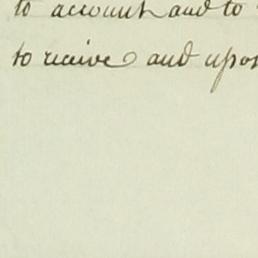 to account and to
to receive and upon